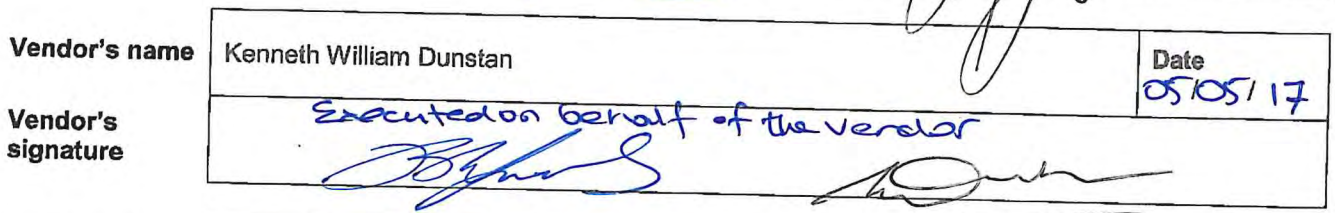 Vendor's name
Kenneth William Dunstan
Date
05/05/17
Vendor's
signature
Executed on behalf of the vendor